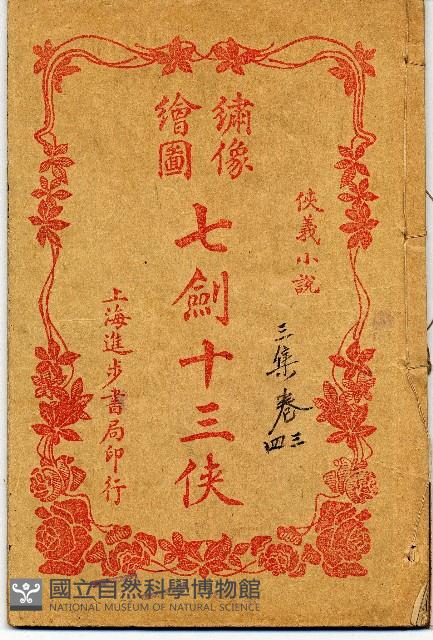 俠義小說
三集卷三四
繡像
繪圖
七劍十三俠
上海進步書局印行
國立自然科學博物館
NATIONAL MUSEUM OF NATURAL SCIENCE